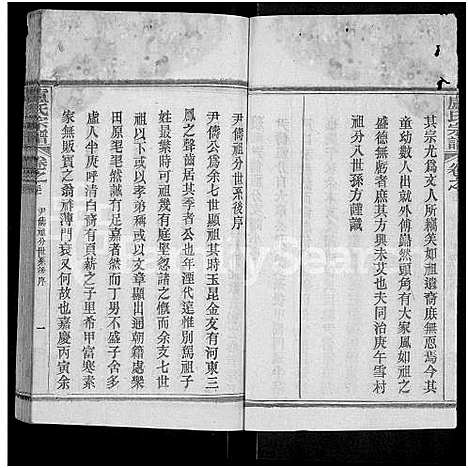 盧氏宗譜
卷之
其宗尤爲文人所竊笑如祖遺裔庶無恧焉今其
童幼數人出就外傅歸然頭角有大家風如祖之
盛德無虧者庶其方興未艾也夫同治庚午雪村
祖分八世孫方謹識
尹儔祖分世系後序
尹儔公爲余七世顯祖其時玉昆金友有河東三
鳳之聲齒居其季者公也年湮代遠惟別駕祖子
姓最繁時或有庭堅忽諸之慨而余支七世
祖以下或以孝弟稱或以文章顯出通朝籍處樂
田原毣毣然誠有足嘉者然而丁男不盛子舍多
虛人坐庚呼清白裔有頁薪之子里希甲富寒素
家無販賓之翁祚薄門衰又何故也嘉慶丙寅余
盧氏宗譜
卷之
尹儔祖分世系後序
一